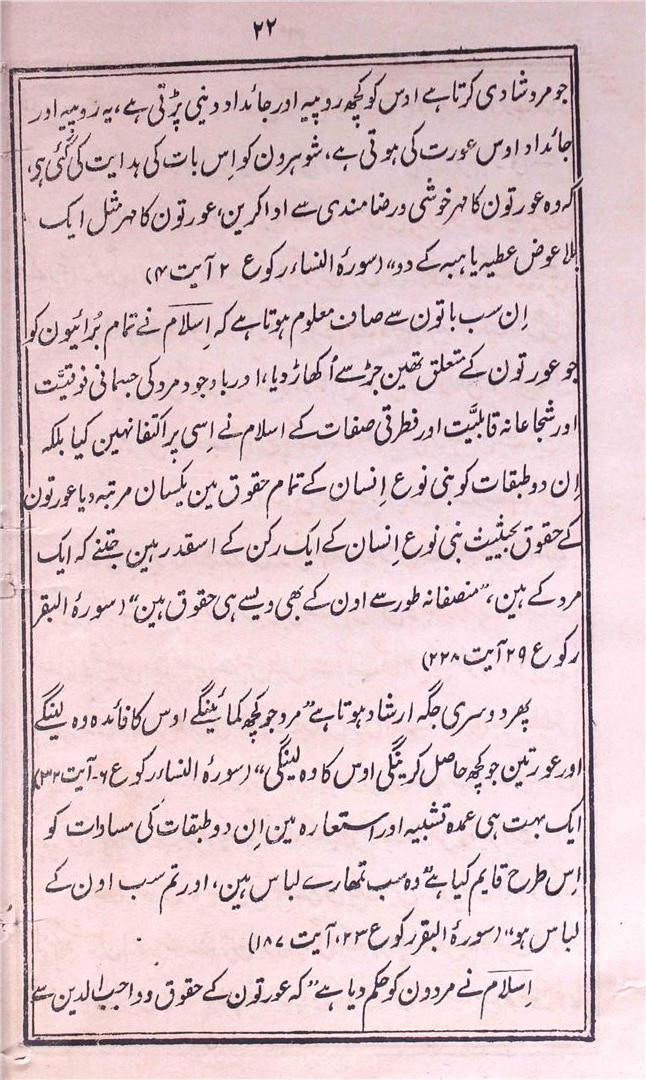 ۲۲
جو مرد شادی کرتا ہے اوس کو کچھ روپیہ اور جائداد دینی پڑتی ہے، یہ روپیہ اور
جائداد اوس عورت کی ہوتی ہے، شوہرون کو اِس بات کی ہدایت کی گئی ہی،
کہ وہ عورتون کا مہر خوشی و رضامندی سے ادا کرین، عورتون کا مہر مثل ایک
بلا عوض عطیہ یا ہبہ کے دو" (سورۂ النساء رکوع ۲ آیت ۴)
اِن سب باتون سے صاف معلوم ہوتا ہے کہ اِسلام نے تمام بُرائیون کو
جو عورتون کے متعلق تھین جڑ سے اُکھاڑ دیا، اور باوجود مرد کی جسمانی فوقیَّت
اور شجاعانہ قابلیَّت اور فطرتی صفات کے اسلام نے اِسی پر اکتفا نہین کیا بلکہ
اِن دو طبقات کو بنی نوع اِنسان کے تمام حقوق مین یکسان مرتبہ دیا عورتون
کے حقوق بحیثیت بنی نوع اِنسان کے ایک رکن کے اسقدر ہین جتنے کہ ایک
مرد کے ہین، "منصفانہ طور سے اون کے بھی ویسے ہی حقوق ہین" (سورۂ البقر
رکوع ۲۹ آیت ۲۲۸)
پھر دوسری جگہ ارشاد ہوتا ہے "مرد جو کچھ کمائینگے اوس کا فائدہ وہ لینگے
اور عورتین جو کچھ حاصل کرینگی اوس کا وہ لینگی" (سورۂ النساء رکوع ۶۔ آیت ۳۲)
ایک بہت ہی عمدہ تشبیہ اور استعارہ مین اِن دو طبقات کی مساوات کو
اِس طرح قایم کیا ہے "وہ سب تمھارے لباس ہین، اور تم سب اون کے
لباس ہو" (سورۂ البقر رکوع ۲۳، آیت ۱۸۷)
اِسلام نے مردون کو حکم دیا ہے "کہ عورتون کے حقوق وواجب الدین سے